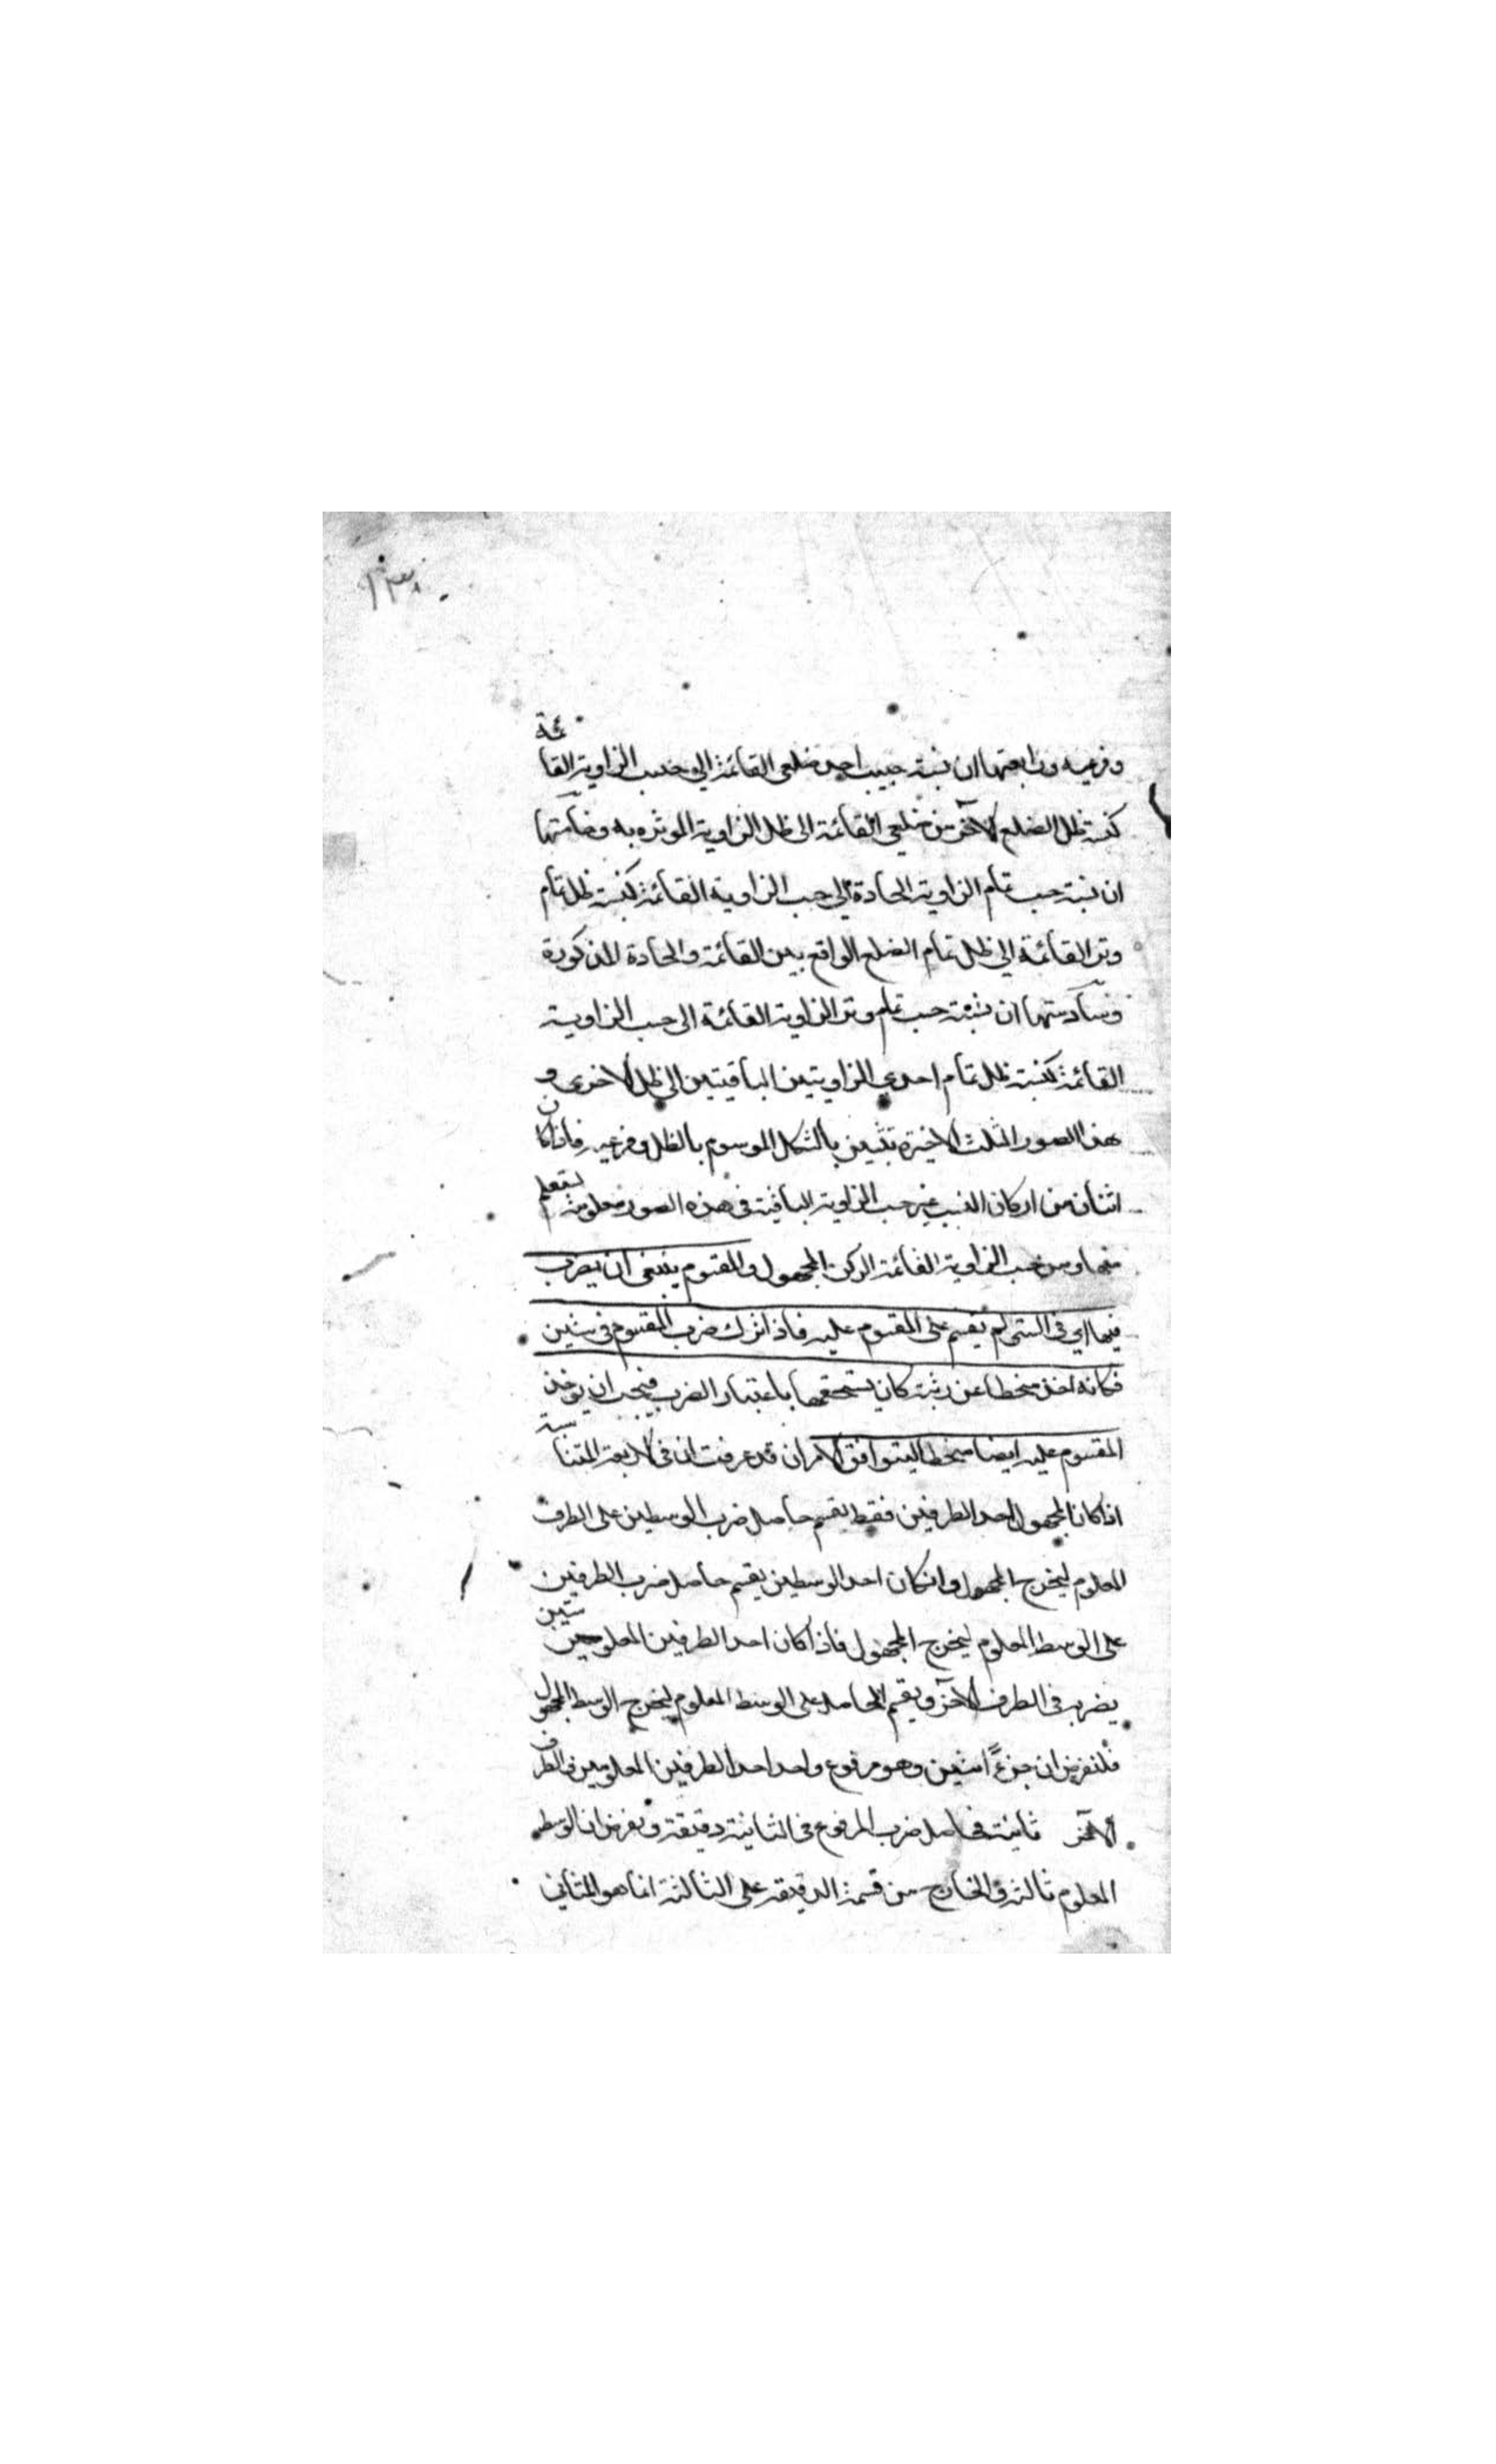 ١٣٨
وفرعيه ورابعتها ان نسبة جيب احد ضلعي القائمة الى جيب الزاوية القائمة
كنسبة ظل الضلع الآخر من ضلعي القائمة الى ظل الزاوية الموثره به وخامستها
ان نسبة جيب تمام الزاوية الحادة الى جيب الزاوية القائمة كنسبة ظل تمام
وتر القائمة الى ظل تمام الضلع الواقع بين القائمة والحادة المذكورة
وسادستها ان نسبة جيب تمام وتر الزاوية القائمة الى جيب الزاوية
القائمة كنسبة ظل تمام احدى الزاويتين الباقيتين الى ظل الاخرى و
هذا الصور الثلث الاخيرة تتبين بالشكل الموسوم بالظل وفرعيه فاذا كان
اثنان من اركان النسب غير جيب الزاوية الباقية في هذه الصور معلومة يستعلم
منها ومن جيب الزاوية القائمة الركن المجهول والمقسوم ينبغي ان يضرب
فيها اي في الستين ثم يقسم على المقسوم عليه فاذا ترك ضرب المقسوم في ستين
فكانه اخذ منحطا عن رتبة كان يستحقها باعتبار الضرب فيجب ان يوخذ
المقسوم عليه ايضا منحطا ليتوافق الامران قد عرفت ان في الاربعة المتناسبة
اذا كان المجهول احد الطرفين فقط يقسم حاصل ضرب الوسطين على الطرف
المعلوم ليخرج المجهول وان كان احد الوسطين يقسم حاصل ضرب الطرفين
على الوسط المعلوم ليخرج المجهول فاذا كان احد الطرفين المعلومين ستين
يضرب في الطرف الآخر ويقسم الحاصل على الوسط المعلوم ليخرج الوسط المجهول
فلنفرض ان جزءًا ستين وهو مرفوع واحد احد الطرفين المعلومين والطرف
الآخر ثانية فحاصل ضرب المرفوع في الثانية دقيقة ونفرض ان الوسط
المعلوم ثالثة والخارج من قسمة الدقيقة على الثالثة انما هو المثاني